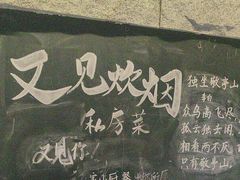 又见炊烟
私房菜
又见你!
独坐敬亭山
众鸟高飞尽
孤云独去闲
相看两不厌
只有敬亭山